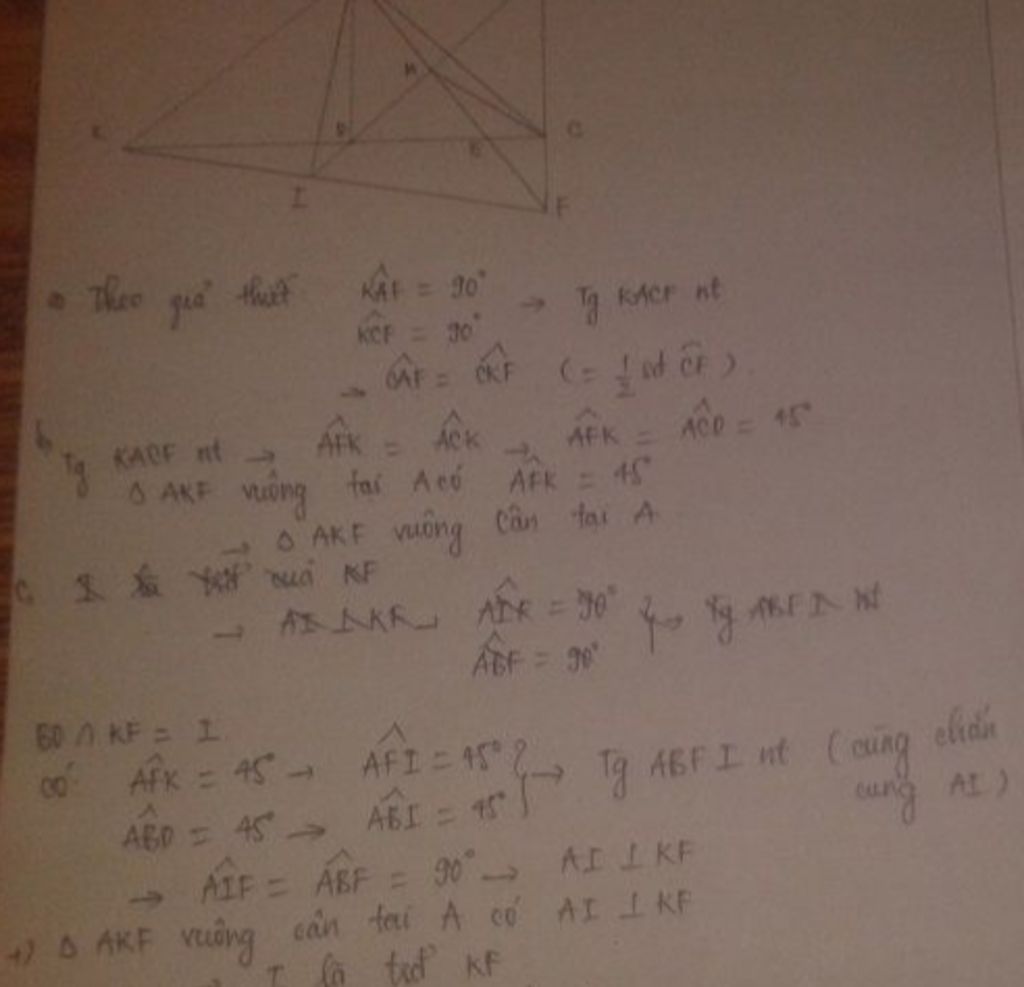 M
K D E C
I F
a) Theo giả thiết KÂF = 90° → Tg KACF nt
KĈF = 90°
→ CÂF = CK̂F (= 1/2 sđ CF)
b, Tg KACF nt → AF̂K = AĈK → AF̂K = AĈD = 45°
Δ AKF vuông tại A có AF̂K = 45°
→ Δ AKF vuông cân tại A
C. I là của KF
→ AI ⊥ KF → = 90° } → Tg ABFI nt
AB̂F = 90°
BD ∩ KF = I
có AF̂K = 45° → AF̂I = 45° } → Tg ABFI nt (cùng chắn
AB̂D = 45° → AB̂I = 45° cung AI)
→ AÎF = AB̂F = 90° → AI ⊥ KF
+) Δ AKF vuông cân tại A có AI ⊥ KF
→ I là tđ KF